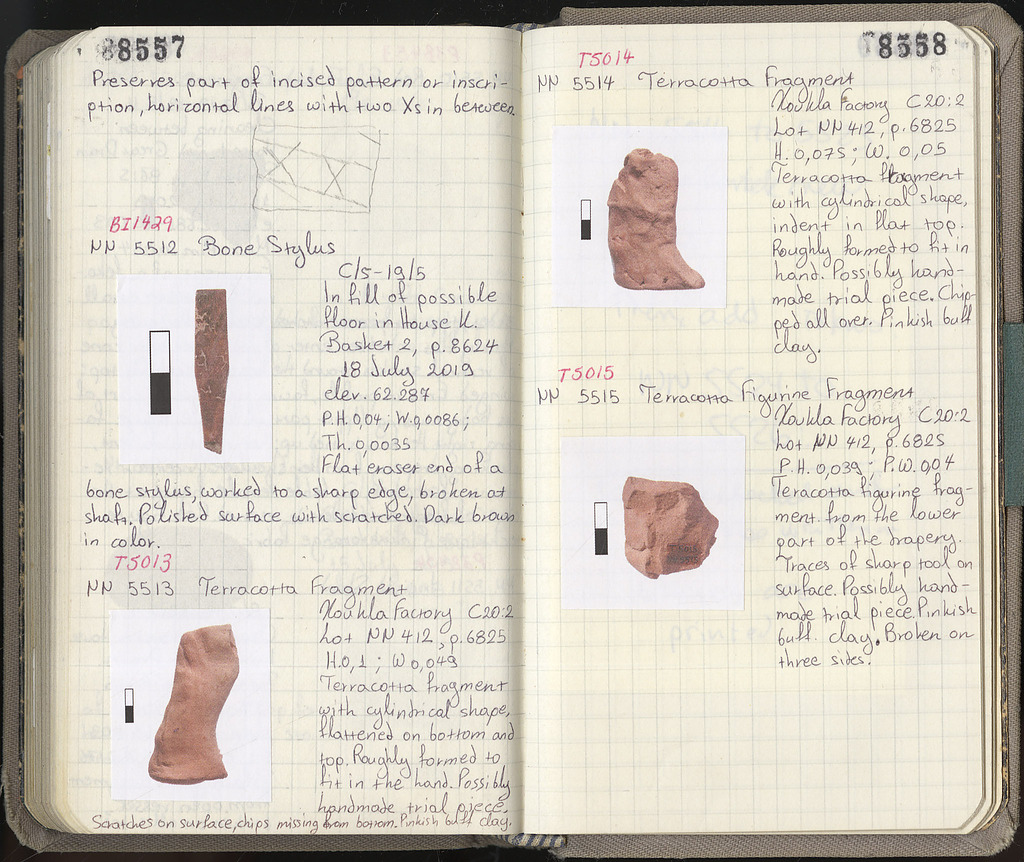 8557
Preserves part of incised pattern or inscri-
ption, horizontal lines with two Xs in between.
BI1429
NN 5512 Bone Stylus
C/5-19/5
In fill of possible
floor in House K.
Basket 2, p.8624
18 July 2019
elev. 62.287
P.H. 0,04; W. 0,0086;
Th. 0,0035
Flat eraser end of a
bone stylus, worked to a sharp edge, broken at
shaft. Polished surface with scratched. Dark brown
in color.
T5013
NN 5513 Terracotta Fragment
Koukla Factory C20:2
Lot NN 412, p.6825
H.0,1 ; W 0,049
Terracotta fragment
with cylindrical shape,
flattened on bottom and
top. Roughly formed to
fit in the hand. Possibly
handmade trial piece.
Scratches on surface, chips missing from bottom. Pinkish buff clay.
8558
T5014
NN 5514 Terracotta Fragment
Koukla Factory C20:2
Lot NN 412, p.6825
H. 0,075 ; W. 0,05
Terracotta fragment
with cylindrical shape,
indent in flat top.
Roughly formed to fit in
hand. Possibly hand-
made trial piece. Chip-
ped all over. Pinkish buff
clay.
T5015
NN 5515 Terracotta Figurine Fragment
Koukla Factory C20:2
Lot NN 412, p.6825
P.H. 0,039 ; P.W. 0,04
Teracotta figurine frag-
ment from the lower
part of the drapery.
Traces of sharp tool on
surface. Possibly hand-
made trial piece. Pinkish
buff clay. Broken on
three sides.